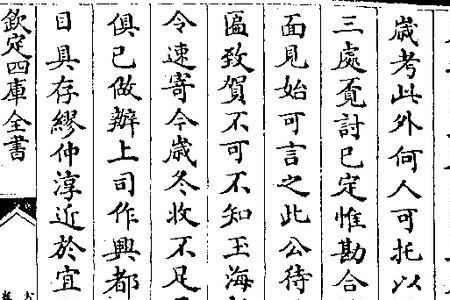 歲考此外何人可托以
三處覔討已定惟勘合
面見始可言之此公待
匾致賀不可不知玉海
令速寄今歲冬收不足
俱已做辦上司作興都
目具存繆仲淳近於宜
欽定四庫全書